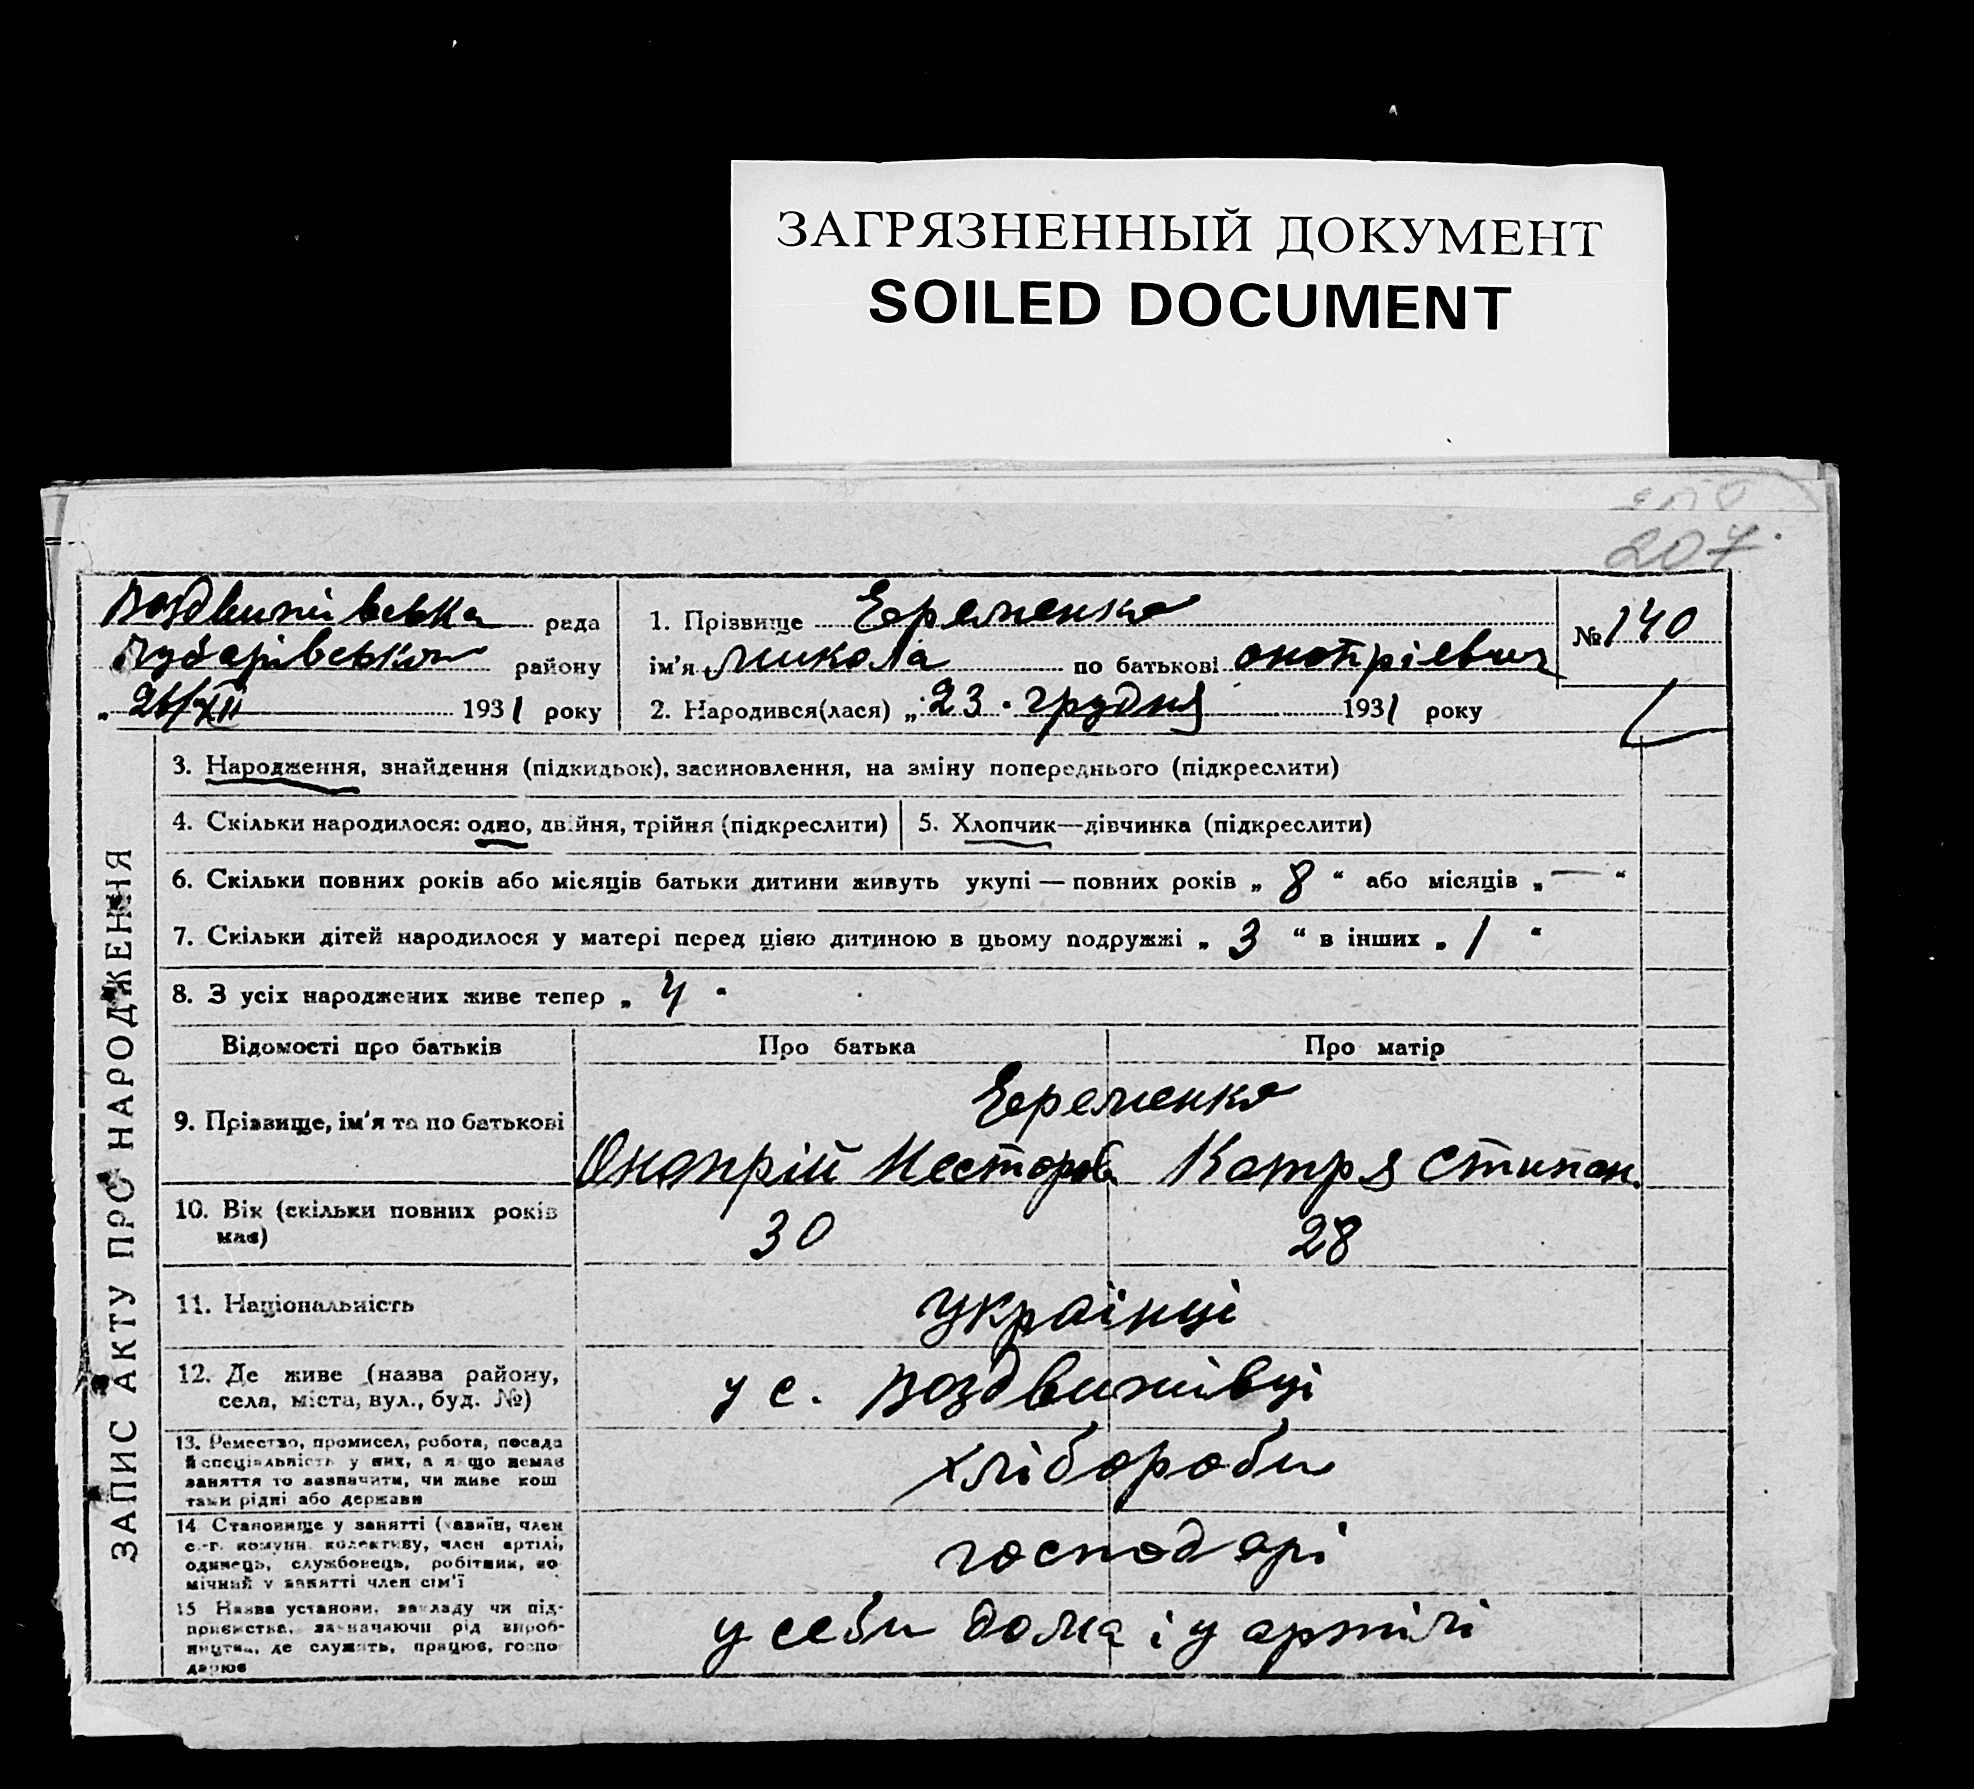 ЗАГРЯЗНЕННЫЙ ДОКУМЕНТ
SOILED DOCUMENT
207.
Воздвижівська рада
Чубарівського району
„ 26/XII 1931 року
1. Прізвище Еременко
ім'я Микола по батькові Онопріевич
2. Народився(лася) „ 23 . грудня 1931 року
№ 140
ЗАПИС АКТУ ПРО НАРОДЖЕННЯ
3. Народження, знайдення (підкидьок), засиновлення, на зміну попереднього (підкреслити)
4. Скільки народилося: одно, двійня, трійня (підкреслити)
5. Хлопчик—дівчинка (підкреслити)
6. Скільки повних років або місяців батьки дитини живуть укупі — повних років „ 8 “ або місяців „ — “
7. Скільки дітей народилося у матері перед цією дитиною в цьому подружжі „ 3 “ в інших „ 1 “
8. З усіх народжених живе тепер „ 4 “
Відомості про батьків Про батька Про матір
Еременко
9. Прізвище, ім'я та по батькові Онопрій Несторов Катря Стипан.
10. Вік (скільки повних років має) 30 28
11. Національність українці
12. Де живе (назва району,
села, міста, вул., буд. №) у с. Воздвижівці
13. Ремество, промисел, робота, посада
й спеціяльність у них, а якщо немає
заняття то зазначити, чи живе кош
тами рідні або держави
хлібороби
14 Становище у занятті (хазяїн, член
с.-г. комуни. колективу, член артілі,
одинець, службовець, робітник, по
мічний у занятті член сім'ї
господарі
15 Назва установи, закладу чи під-
приємства, зазначаючи рід вироб-
ництва, де служить, працює, госпо
дарює
у себи дома і у артілі